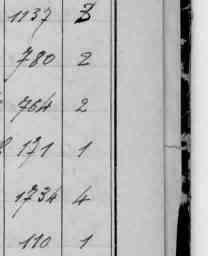 1137 3
780 2
764 2
171 1
1734 4
110 1